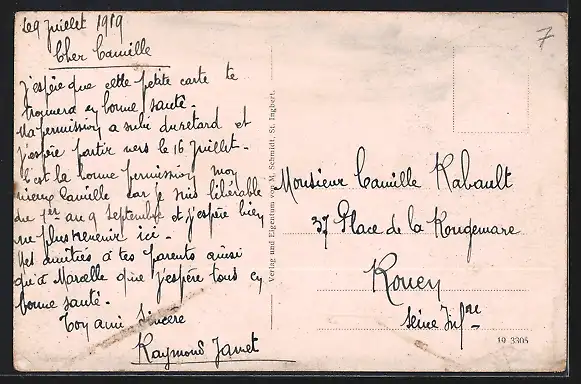 Le 9 Juillet 1919
Cher Camille
J'espère que cette petite carte te
trouvera en bonne santé.
Ma permission a subi du retard et
j'espère partir vers le 16 Juillet -
C'est la bonne permission mon
vieux Camille car je suis libérable
du 1er au 9 Septembre et j'espère bien
ne plus revenir ici.
Mes amitiés à tes parents ainsi
qu'à Marcelle que j'espère tous en
bonne santé.
Ton ami Sincère
Raymond
Verlag und Eigentum von M. Schmidt, St. Ingbert.
7
Monsieur Camille Rabault
37 Place de la Rougemare
Rouen
Seine Infre
19 3305